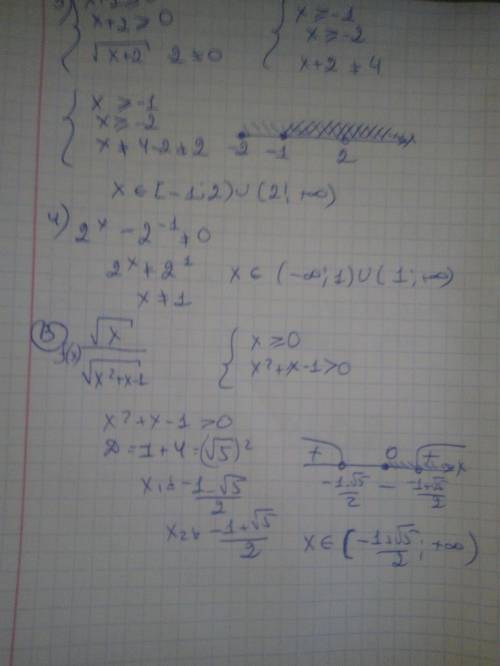 x+2≥0
√x+2 2≠0
x≥-1
x≥-2
x+2≠4
x≥-1
x≥-2
x≠4-2≠2
-2 -1 2 x
x∈[-1;2)∪(2;+∞)
4) 2^x - 2^-1 ≠0
2^x ≠ 2^1
x≠1
x∈(-∞;1)∪(1;+∞)
B
f(x) √x / √x²+x-1
x≥0
x²+x-1>0
x²+x-1>0
D=1+4=(√5)²
x₁= -1-√5 / 2
x₂= -1+√5 / 2
+ 0 + x
-1-√5 / 2 - -1+√5 / 2
x∈[-1+√5 / 2; +∞)